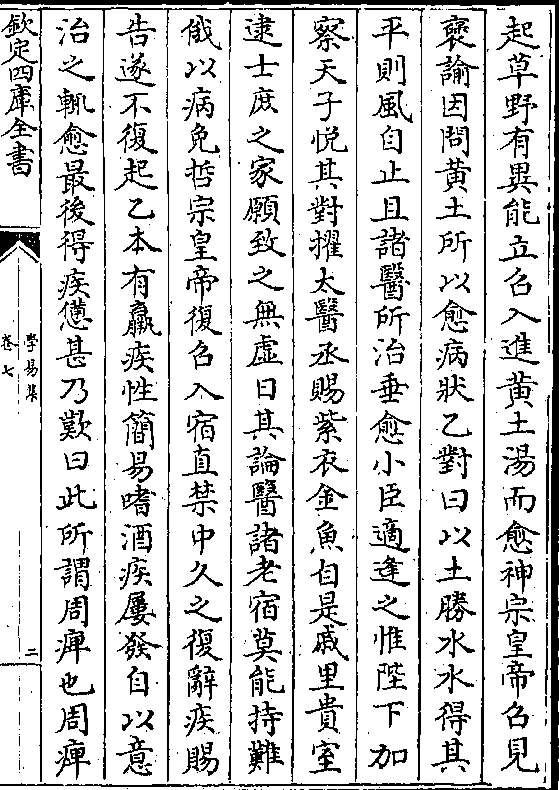 起草野有異能立召入進黄土湯而愈神宗皇帝召見
褒諭因問黄土所以愈病狀乙對曰以土勝水水得其
平則風自止且諸醫所治垂愈小臣適逢之惟陛下加
察天子悦其對擢太醫丞賜紫衣金魚自是戚里貴室
逮士庶之家願致之無虚日其論醫諸老宿莫能持難
俄以病免哲宗皇帝復召入宿直禁中久之復辭疾賜
告遂不復起乙本有羸疾性簡易嗜酒疾屢發自以意
治之輒愈最後得疾憊甚乃歎曰此所謂周痺也周痺
欽定四庫全書
學易集
卷七
二